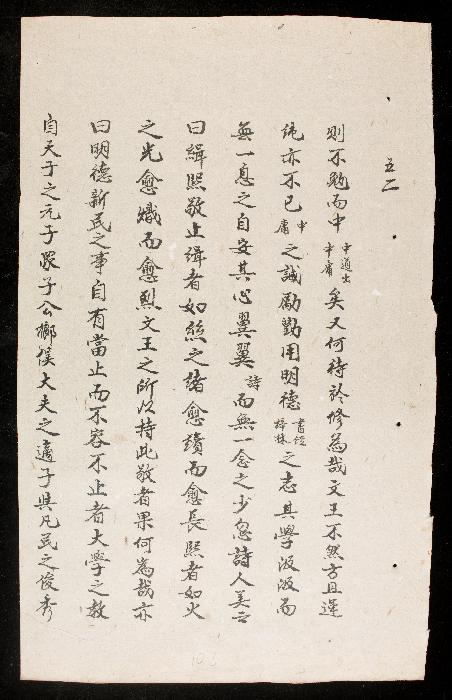 五二
則不勉而中中道出中庸矣又何待於修爲哉文王不然方且運
純亦不已中庸之誠勵勤用明德書經梓材之志其學汲汲而
無一息之自安其心翼翼詩而無一念之少忽詩人美之
曰緝熙敬止緝者如絲之緒愈續而愈長熙者如火
之光愈熾而愈烈文王之所以持此敬者果何爲哉亦
曰明德新民之事自有當止而不容不止者大學之教
自天子之元子衆子公卿侯大夫之適子與凡民之俊秀